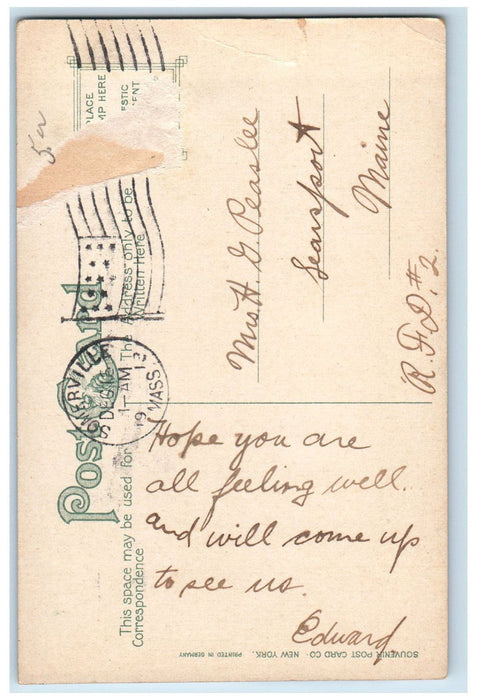 Post Card
This space may be used for
Correspondence
The Address only to be
Written Here
PLACE
MP HERE
ESTIC
ENT
SOMERVILLE
DEC
1-AM
MASS.
Mrs. H. G. Peaslee
Searsport
Maine
R.F.D. #2.
Hope you are
all feeling well.
and will come up
to see us.
Edward
SOUVENIR POST CARD CO. NEW YORK. PRINTED IN GERMANY